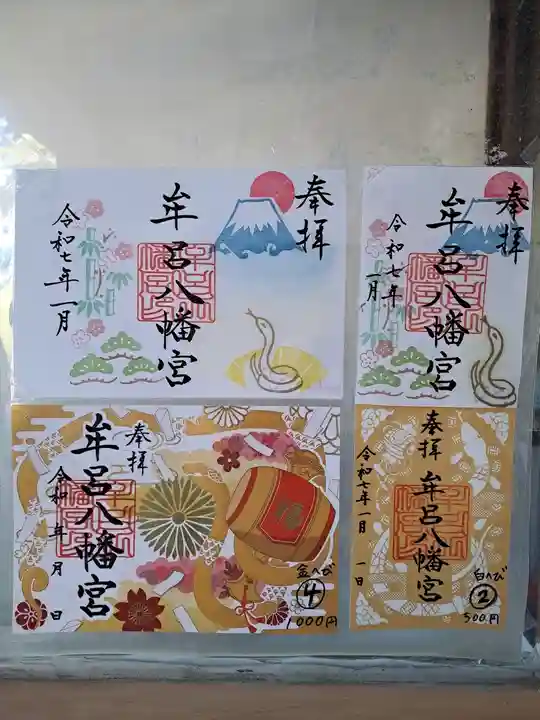 奉拝
牟呂八幡宮
令和七年一月
奉拝
牟呂八幡宮
令和七年
一月
奉拝
牟呂八幡宮
令和 年 月 日
金へび
④
1000円
奉拝
牟呂八幡宮
令和七年一月 一日
白へび
②
500円